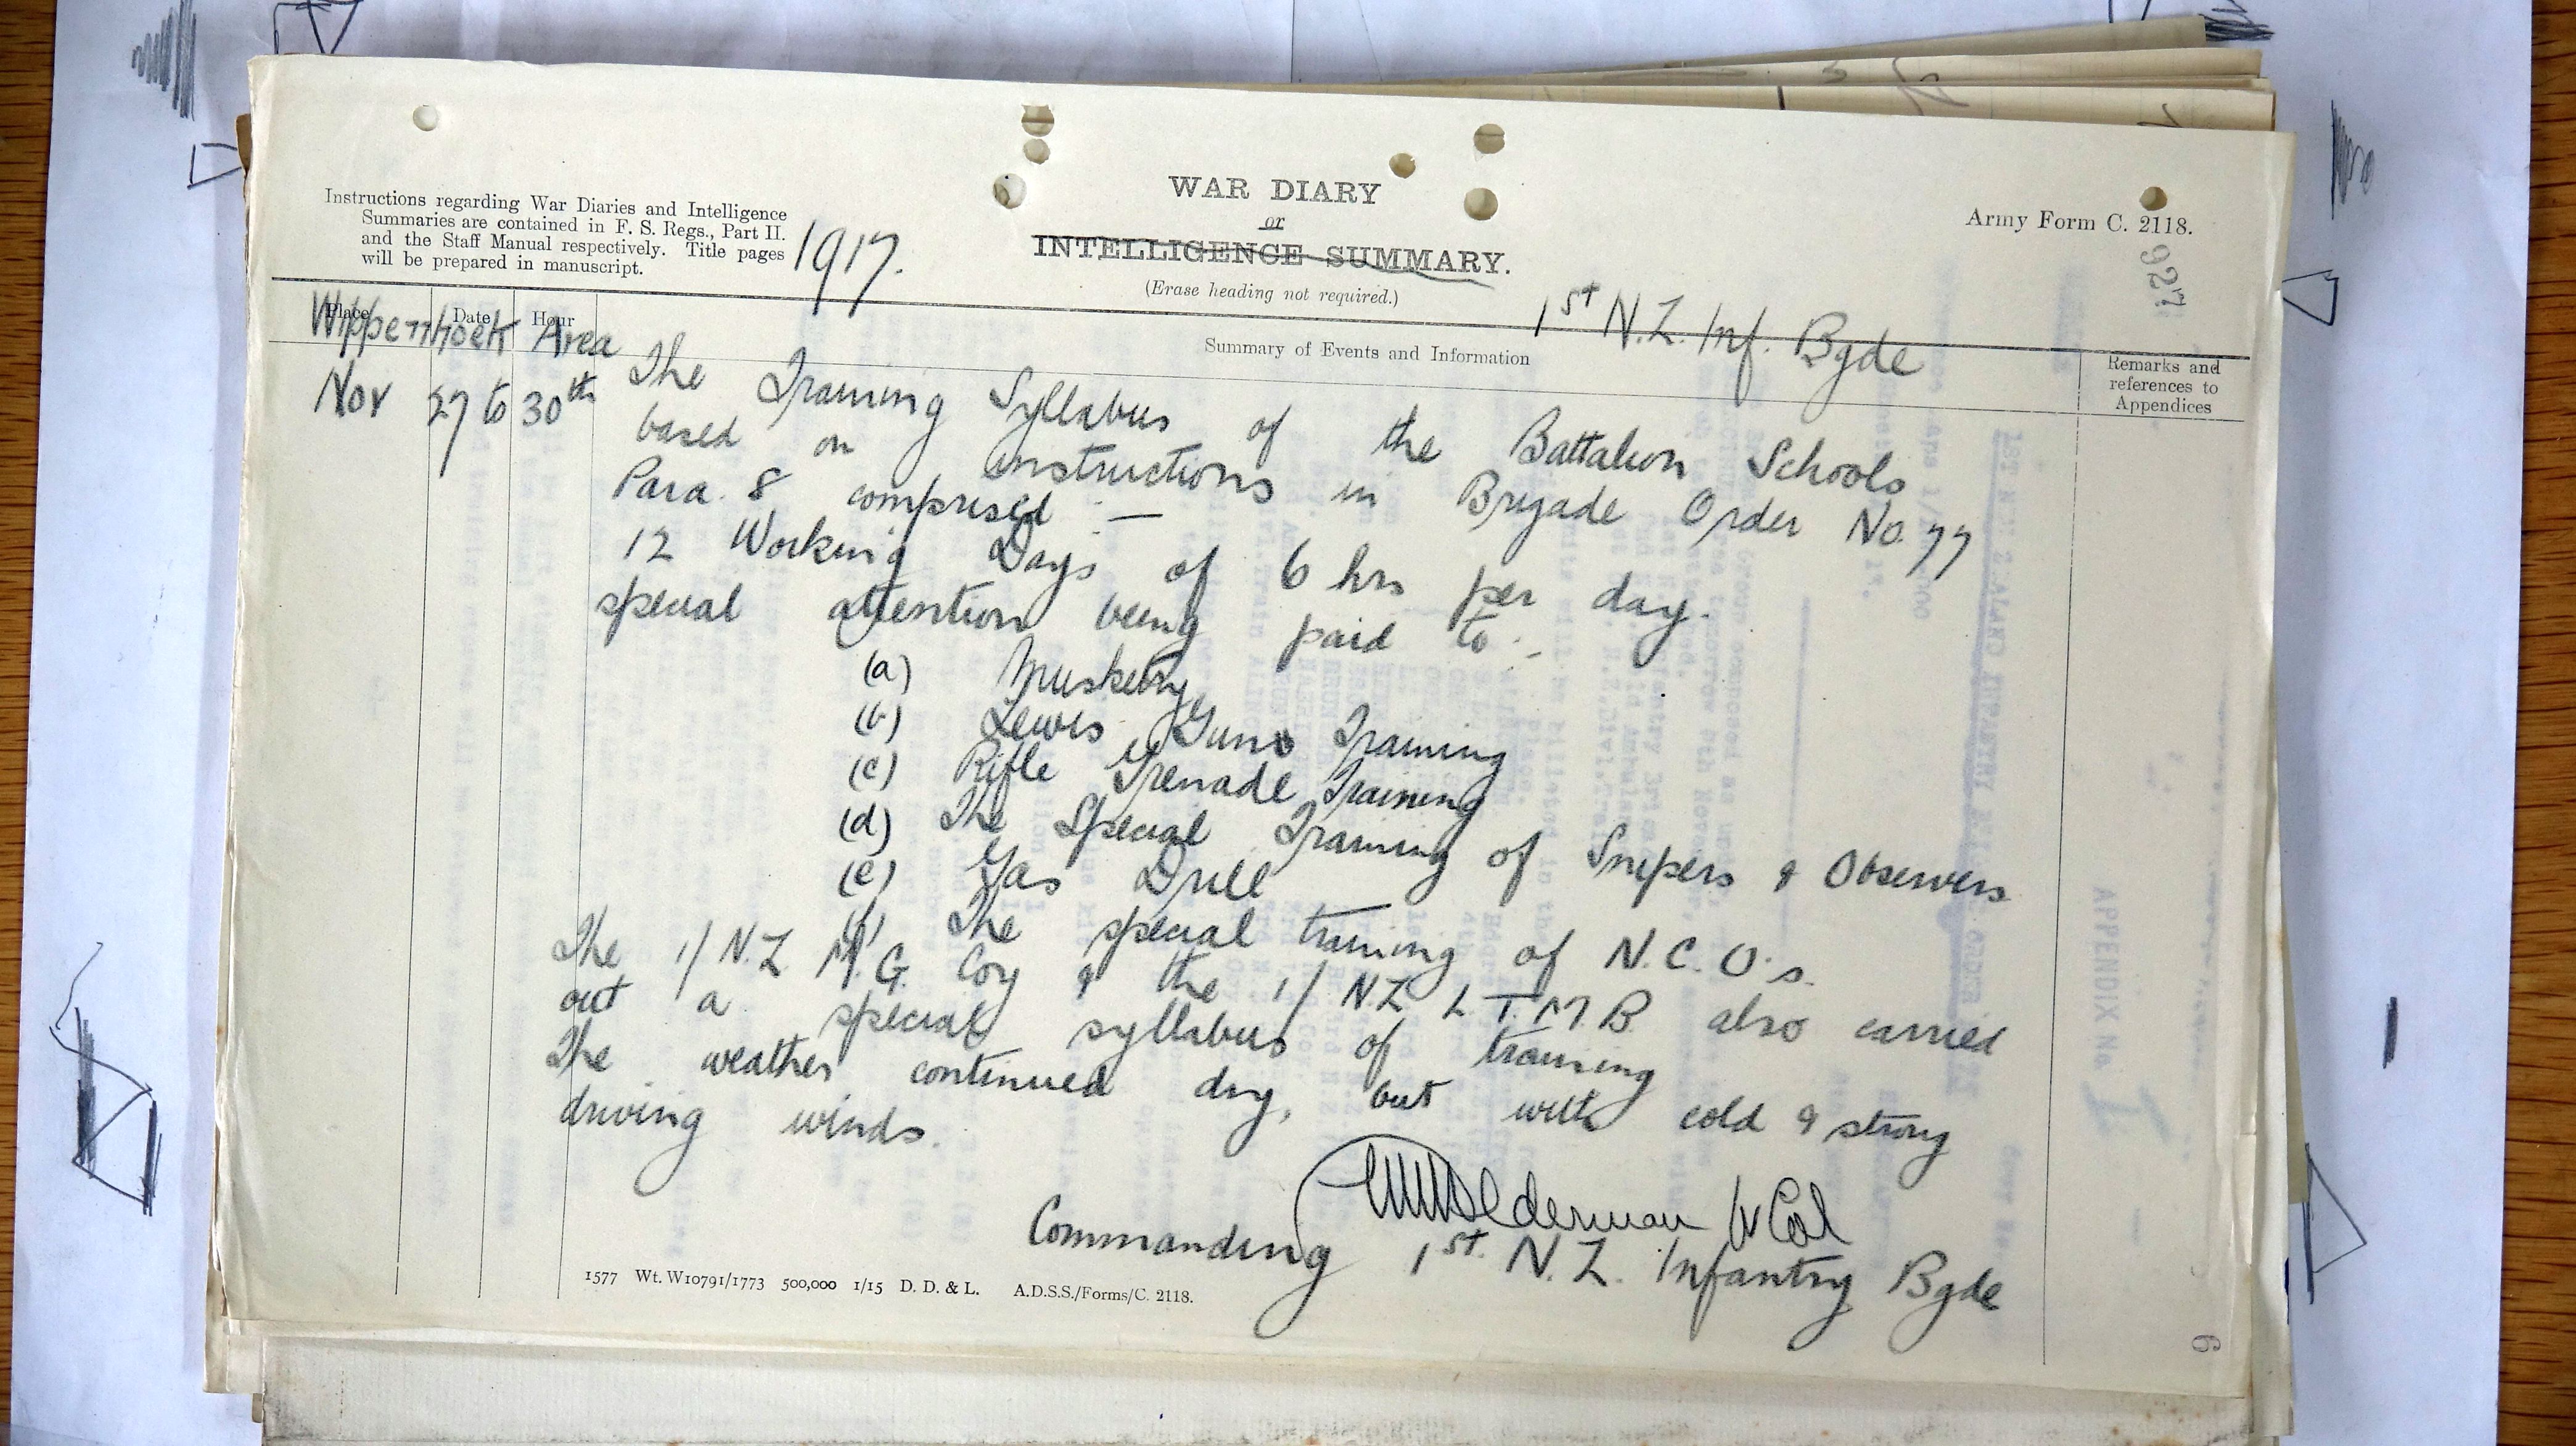 Instructions regarding War Diaries and Intelligence
Summaries are contained in F. S. Regs., Part II.
and the Staff Manual respectively. Title pages
will be prepared in manuscript.
1917.
WAR DIARY
or
INTELLIGENCE SUMMARY.
(Erase heading not required.)
Army Form C. 2118.
927
1st N.Z. Inf. Bgde
Place Date Hour
Summary of Events and Information
Remarks and
references to
Appendices
Wippenhoek Area
Nov 27 to 30th
The Training Syllabus of the Battalion Schools
based on instructions in Brigade Order No. 77
Para. 8 comprised :—
12 Working Days of 6 hrs per day.
special attention being paid to :-
(a) Musketry
(b) Lewis Guns Training
(c) Rifle Grenade Training
(d) The Special Training of Snipers & Observers
(e) Gas Drill
(f) The special training of N.C.O.s.
The 1/ N.Z. M.G. Coy & the 1/ N.Z. L.T.M.B. also carried
out a special syllabus of training
The weather continued dry, but with cold & strong
driving winds.
Alderman Lt Col
Commanding 1st. N.Z. Infantry Bgde
1577 Wt. W10791/1773 500,000 1/15 D. D. & L. A.D.S.S./Forms/C. 2118.
APPENDIX No
6